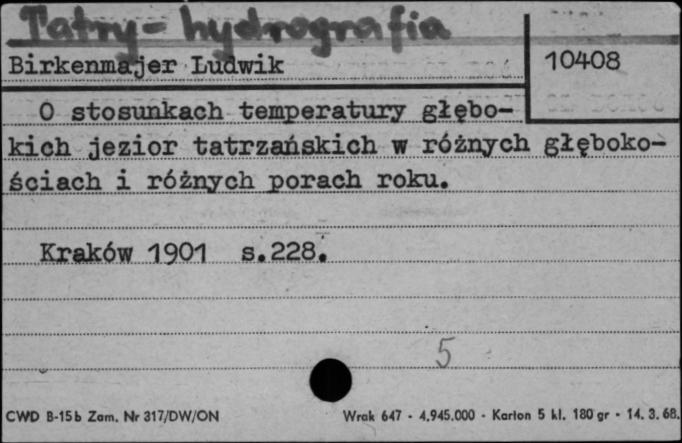 Tatry - hydrografia
Birkenmajer Ludwik
10408
O stosunkach temperatury głębo-
kich jezior tatrzańskich w różnych głęboko-
ściach i różnych porach roku.
Kraków 1901 s.228.
5
CWD B-15b Zam. Nr 317/DW/ON
Wrak 647 - 4.945.000 - Karton 5 kl. 180 gr - 14. 3. 68.